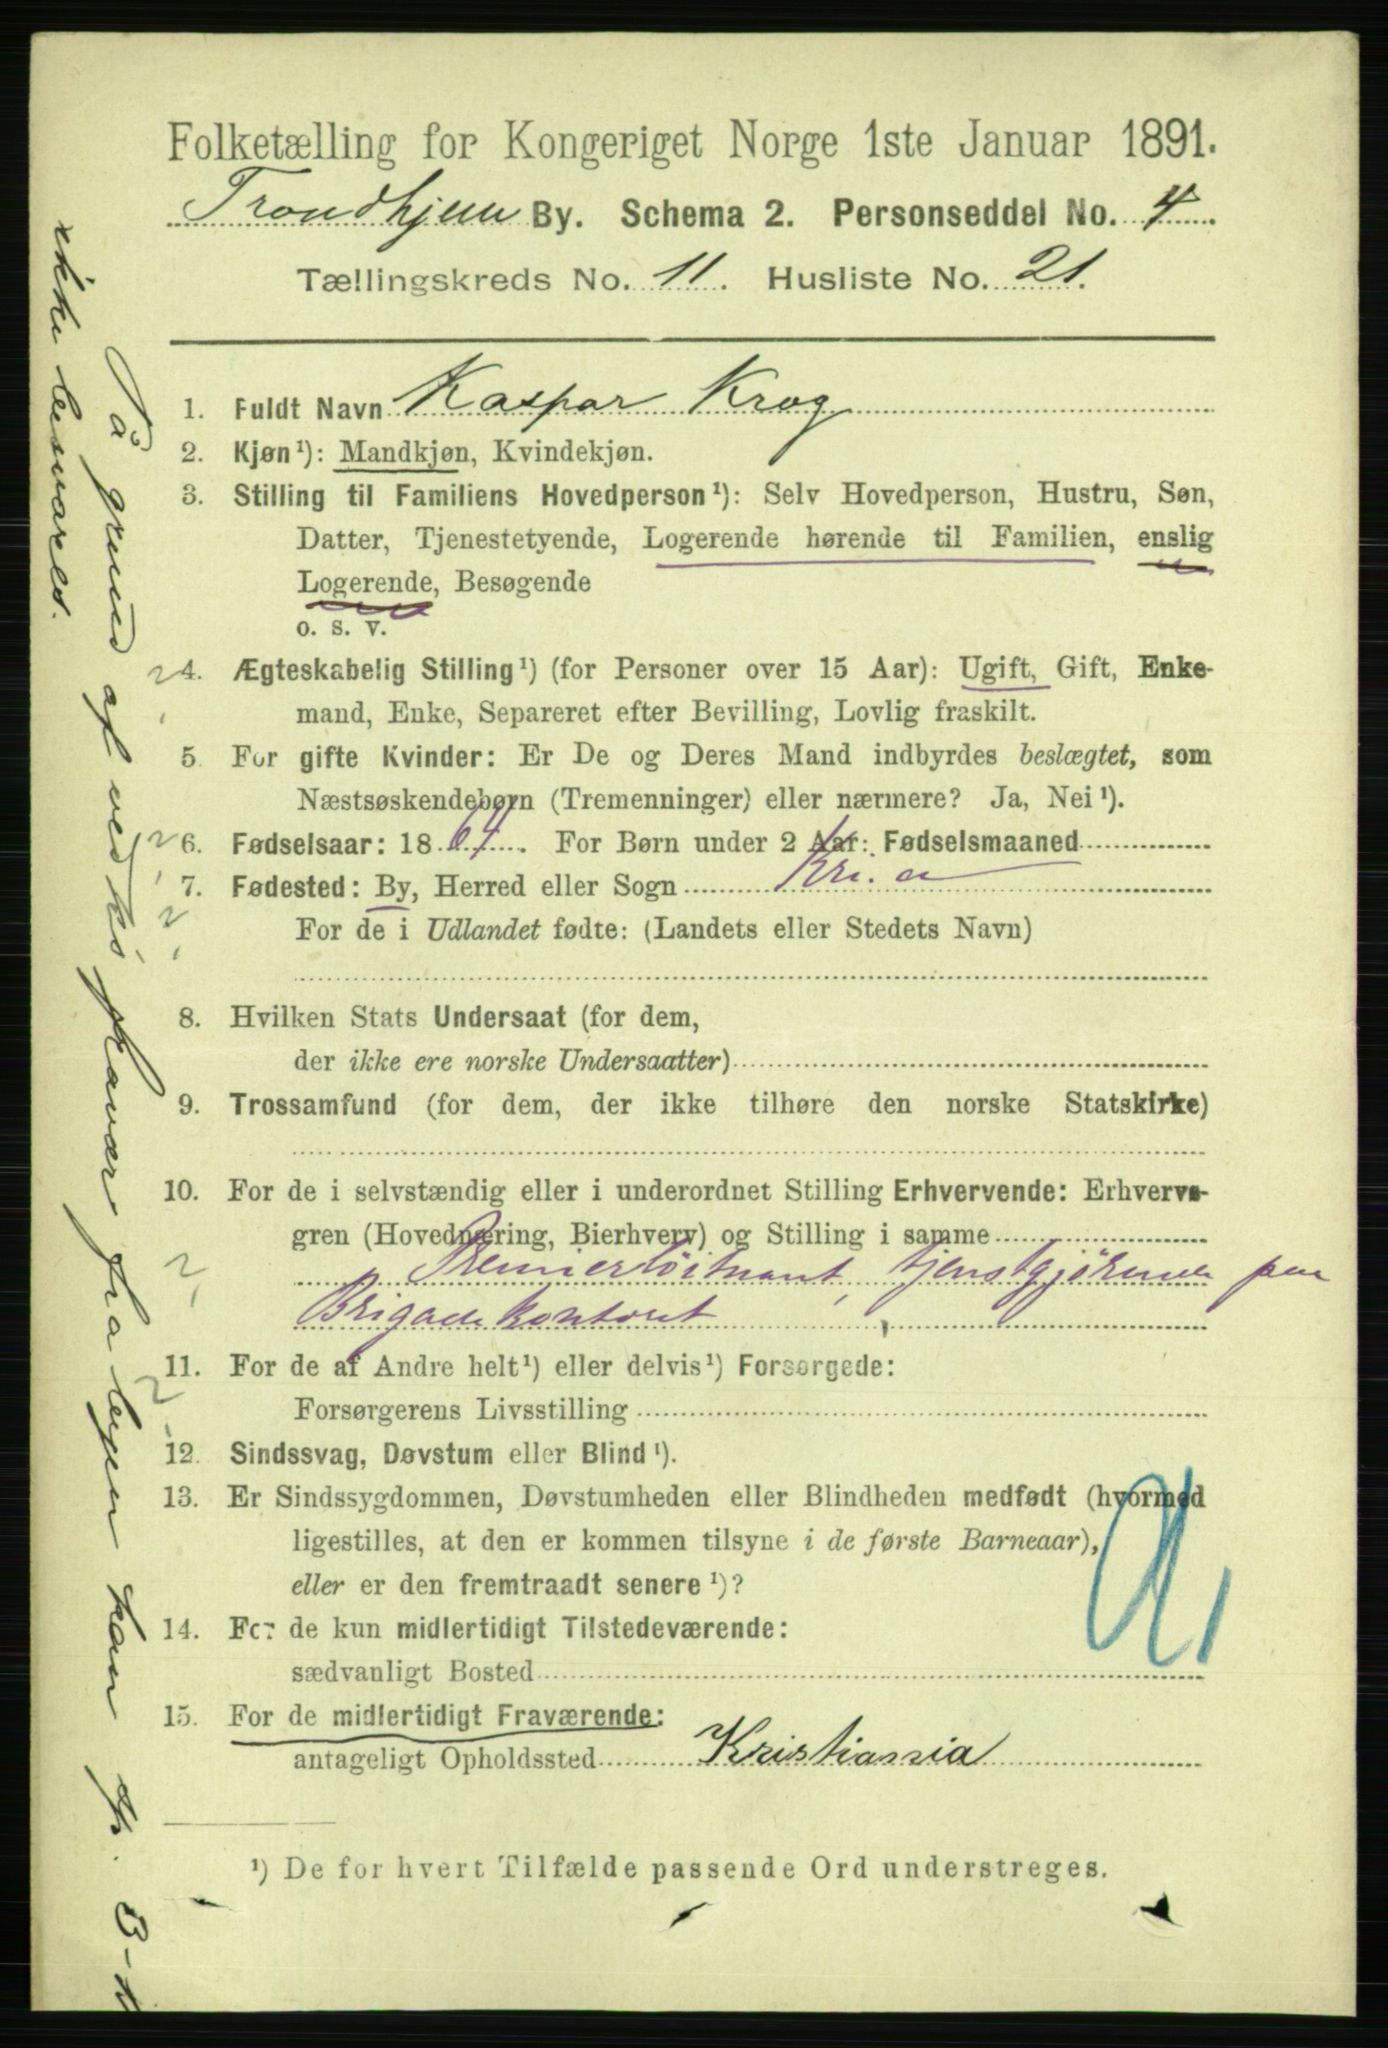 Folketælling for Kongeriget Norge 1ste Januar 1891.
Trondhjem By. Schema 2. Personseddel No. 4
Tællingskreds No. 11. Husliste No. 21.
1. Fuldt Navn Kaspar Krog
2. Kjøn¹): Mandkjøn, Kvindekjøn.
3. Stilling til Familiens Hovedperson¹): Selv Hovedperson, Hustru, Søn,
Datter, Tjenestetyende, Logerende hørende til Familien, enslig
Logerende, Besøgende
o. s. v.
4. Ægteskabelig Stilling¹) (for Personer over 15 Aar): Ugift, Gift, Enke-
mand, Enke, Separeret efter Bevilling, Lovlig fraskilt.
5. For gifte Kvinder: Er De og Deres Mand indbyrdes beslægtet, som
Næstsøskendebørn (Tremenninger) eller nærmere? Ja, Nei¹).
6. Fødselsaar: 1864. For Børn under 2 Aar: Fødselsmaaned
7. Fødested: By, Herred eller Sogn Kr.a
For de i Udlandet fødte: (Landets eller Stedets Navn)
8. Hvilken Stats Undersaat (for dem,
der ikke ere norske Undersaatter)
9. Trossamfund (for dem, der ikke tilhøre den norske Statskirke)
10. For de i selvstændig eller i underordnet Stilling Erhvervende: Erhvervs-
gren (Hovednæring, Bierhverv) og Stilling i samme
Premierløitnant, tjenstgjørende paa
Brigadekontoret
11. For de af Andre helt¹) eller delvis¹) Forsørgede:
Forsørgerens Livsstilling
12. Sindssvag, Døvstum eller Blind¹).
13. Er Sindssygdommen, Døvstumheden eller Blindheden medfødt (hvormed
ligestilles, at den er kommen tilsyne i de første Barneaar),
eller er den fremtraadt senere¹)?
14. For de kun midlertidigt Tilstedeværende:
sædvanligt Bosted
15. For de midlertidigt Fraværende:
antageligt Opholdssted Kristiania
¹) De for hvert Tilfælde passende Ord understreges.
På grund af vedk.s fravær fra byen kan
ikke besvares.